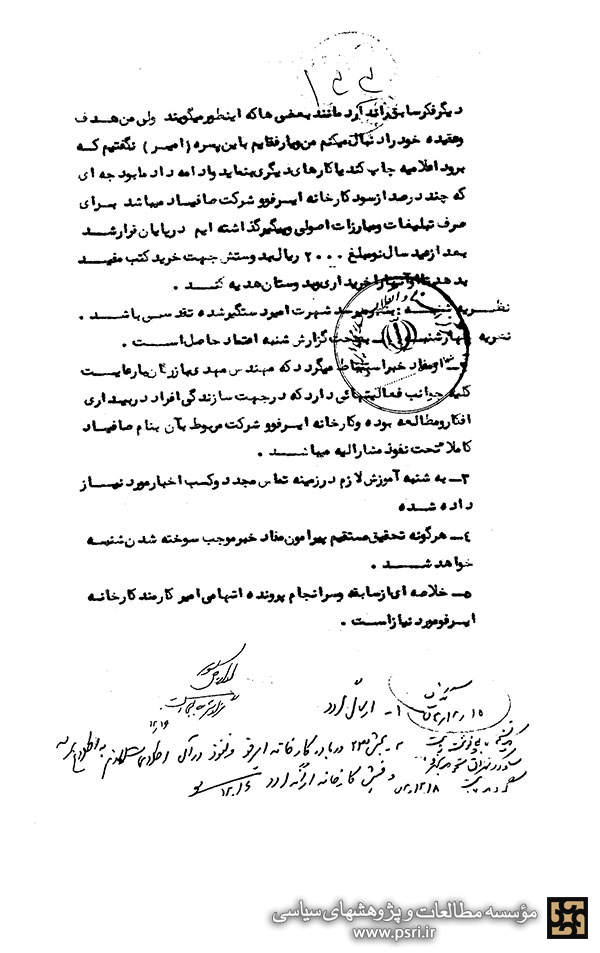 دیگر فکر سابق را ندارد مانند بعضی ها که اینطور میگویند ولی من هدف
وعقیده خود را دنبال میکنم من ورفقایم باین پسره (امیر) نگفتیم که
برود اعلامیه چاپ کند یا کارهای دیگری بنماید وادامه داد ما بودجه ای
که چند درصد از سود کارخانه ایرفوو شرکت صافیاد میباشد برای
صرف تبلیغات ومبارزات اصولی وپیگیر گذاشته ایم در پایان قرار شد
بعد از عید سال نو مبلغ ۲۰۰۰ ریال به دوستش جهت خرید کتب مفید
بدهد تا خریداری وبدوستان هدیه کند .
نظریه شنبه : شهرت امیر دستگیر شده تقدسی باشد .
نظریه چهارشنبه : ۱ـ بصحت گزارش شنبه اعتماد حاصل است .
۲ـ از مفاد خبر استنباط میگردد که مهندس مهدی بازرگان با رعایت
کلیه جوانب فعالیتهائی دارد که در جهت سازندگی افراد در بیداری
افکار ومطالعه بوده وکارخانه ایرفوو شرکت مربوط بآن بنام صافیاد
کاملا تحت نفوذ مشارالیه میباشد .
۳ـ به شنبه آموزش لازم در زمینه تماس مجدد وکسب اخبار مورد نیاز
داده شده
٤ـ هرگونه تحقیق مستقیم پیرامون مفاد خبر موجب سوخته شدن شنبه
خواهد شد .
۵ـ خلاصه ای از سابقه وسرانجام پرونده اتهامی امیر کارمند کارخانه
ایرفو مورد نیاز است .
۱ـ ارسال گردد
۱۲/۱۶
۲ـ بخش ۲۳ درباره کارخانه ایرفو و نفوذ در آن اطلاعات
و فیش کارخانه ارائه گردد
مؤسسه مطالعات و پژوهشهای سیاسی
www.psri.ir